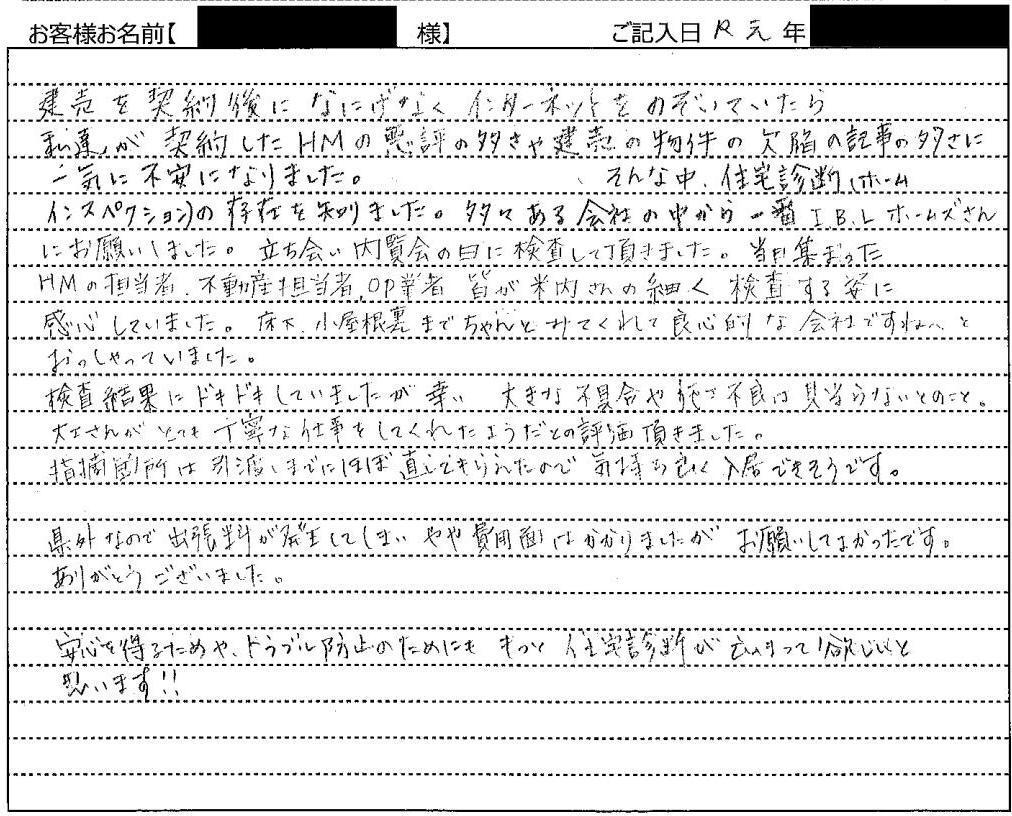 お客様お名前【 様】 ご記入日 R元年
建売を契約後になにげなくインターネットをのぞいていたら
私達が契約したHMの悪評の多さや建売の物件の欠陥の記事の多さに
一気に不安になりました。 そんな中、住宅診断(ホーム
インスペクション)の存在を知りました。多々ある会社の中から一番I.B.Lホームズさん
にお願いしました。立ち会い内覧会の日に検査して頂きました。当日集まった
HMの担当者、不動産担当者、OP業者 皆が米内さんの細く検査する姿に
感心していました。床下、小屋根裏までちゃんとみてくれて良心的な会社ですねぇと
おっしゃっていました。
検査結果にドキドキしていましたが幸い 大きな不具合や施工不良は見当らないとのこと。
大工さんがとても丁寧な仕事をしてくれたようだとの評価頂きました。
指摘箇所は引渡しまでにほぼ直してきられたので気持ち良く入居できそうです。
県外なので出張料が発生してしまいやや費用面はかかりましたがお願いしてよかったです。
ありがとうございました。
安心を得るためや、トラブル防止のためにももっと住宅診断が広まって欲しいと
思います!!